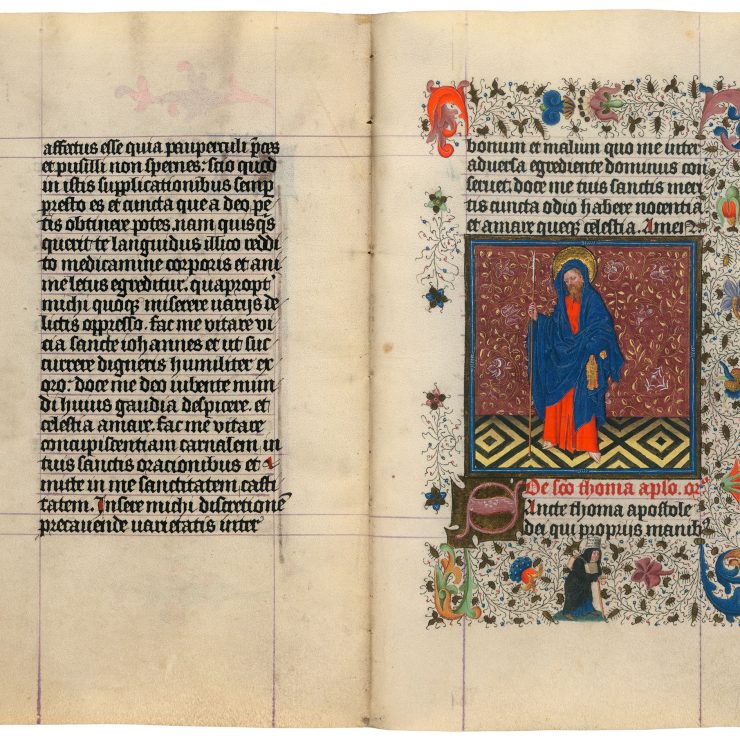 affertus esse quia pauperculi p̄c̄ꝫ
et pusilli non spernes: scio quod
in istis supplicationibus semp̲
presto es et cuncta que a deo, pe
tis obtinere potes. nam quisqꝫ
querit te languidus illico reddi
to medicamine corporis et ani
me letus egreditur. quapropt̾
michi quoqꝫ misere varijs de
lictis oppresso. fac me vitare vi
cia sancte iohannes et ut suc
currere digneris humiliter ex
oro: doce me deo iubente mun
di huius gaudia despicere. et
celestia amare. fac me vitare
concupiscentiam carnalem in
tuis sanctis oracionibus et
mitte in me sanctitatem casti
tatem. Insere michi discretionē
precauende varietatis inter
bonum et malum quo me inter
adversa egrediente dominus con
servet: doce me tuis sanctis meri
tis cuncta odio habere nocentia
et amare queqꝫ celestia. Amen
De sc̄o thoma aplo. or̄
Sancte thoma apostole
dei qui proprijs manibꝫ